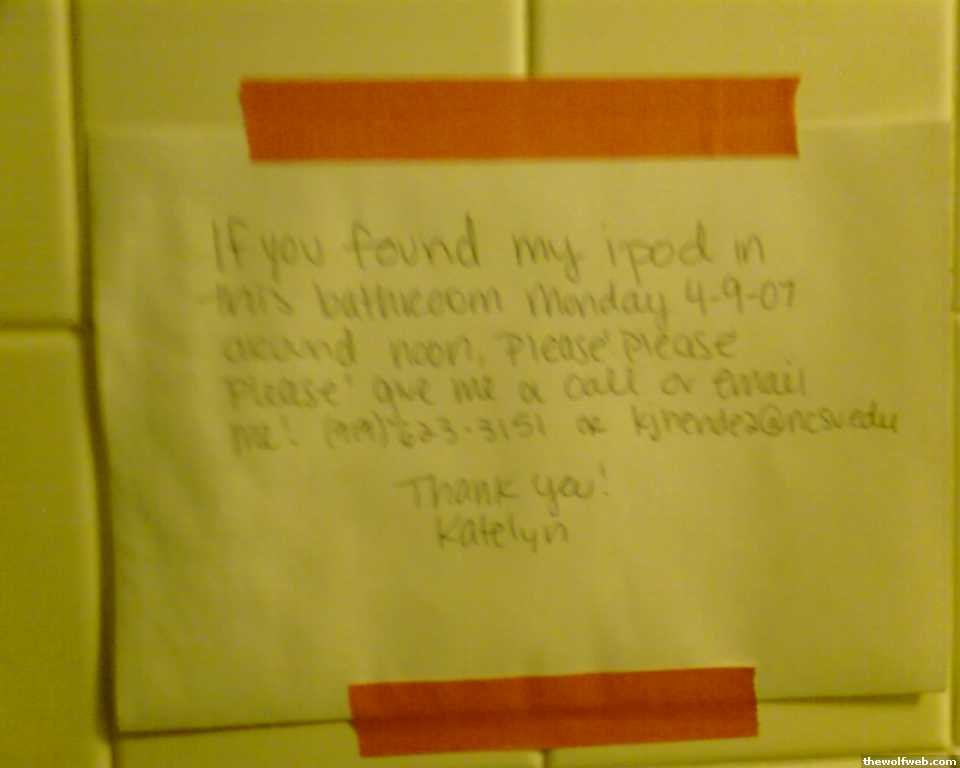 If you found my ipod in
this bathroom Monday 4-9-07
around noon, Please Please
Please give me a call or email
me! (919) 623-3151 or kjmendez@ncsu.edu
Thank you!
Katelyn
thewolfweb.com